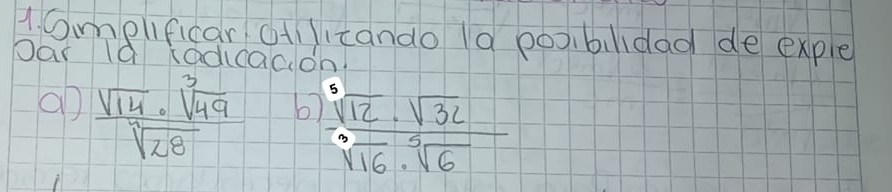 1. Simplificar utilizando la posibilidad de expre
sar la radicación.
a) √14 . ³√49 / ⁴√28 b) ⁵√12 . √32 / ³√16 . ⁵√6